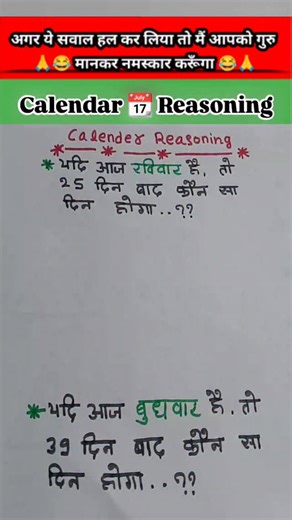 अगर ये सवाल हल कर लिया तो मैं आपको गुरु
🙏😂 मानकर नमस्कार करूँगा 😂🙏
Calendar 📅 Reasoning
Calender Reasoning
* यदि आज रविवार है, तो
25 दिन बाद कौन सा
दिन होगा..??
* यदि आज बुधवार है, तो
39 दिन बाद कौन सा
दिन होगा..??